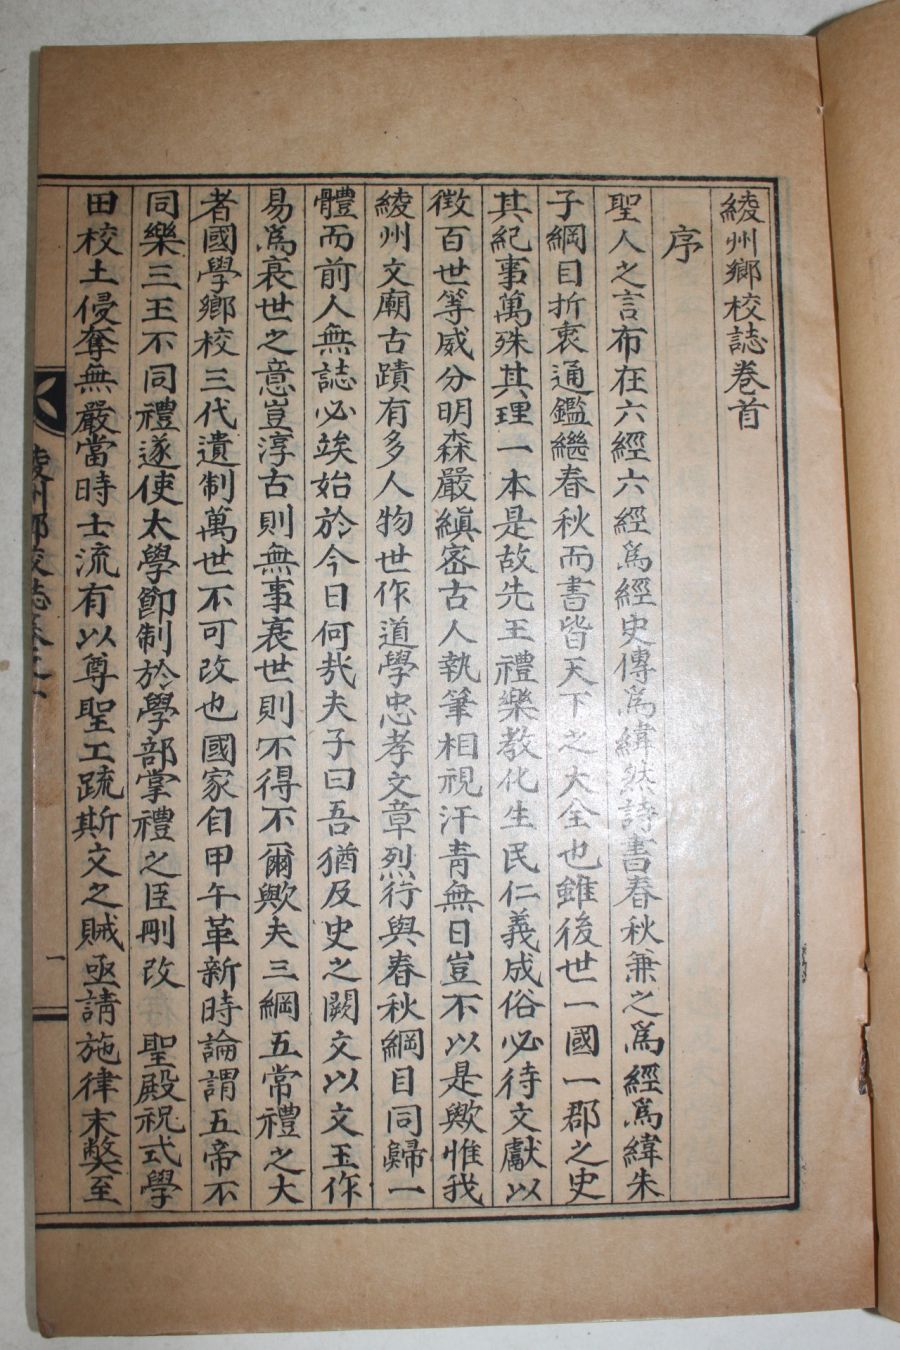 綾州鄕校誌卷首
序
聖人之言布在六經六經爲經史傳爲緯然詩書春秋兼之爲經爲緯朱
子綱目折衷通鑑繼春秋而書皆天下之大全也雖後世一國一郡之史
其紀事萬殊其理一本是故先王禮樂敎化生民仁義成俗必待文獻以
徵百世等威分明森嚴縝密古人執筆相視汗靑無日豈不以是歟惟我
綾州文廟古蹟有多人物世作道學忠孝文章烈行與春秋綱目同歸一
體而前人無誌必竢始於今日何㢤夫子曰吾猶及史之闕文以文玉作
易爲衰世之意豈淳古則無事衰世則不得不爾歟夫三綱五常禮之大
者國學鄕校三代遺制萬世不可改也國家自甲午革新時論謂五帝不
同樂三王不同禮遂使太學節制於學部掌禮之臣刪改 聖殿祝式學
田校土侵奪無嚴當時士流有以尊聖工䟽斯文之賊亟請施律末獘至
綾州鄕校誌卷之一 一